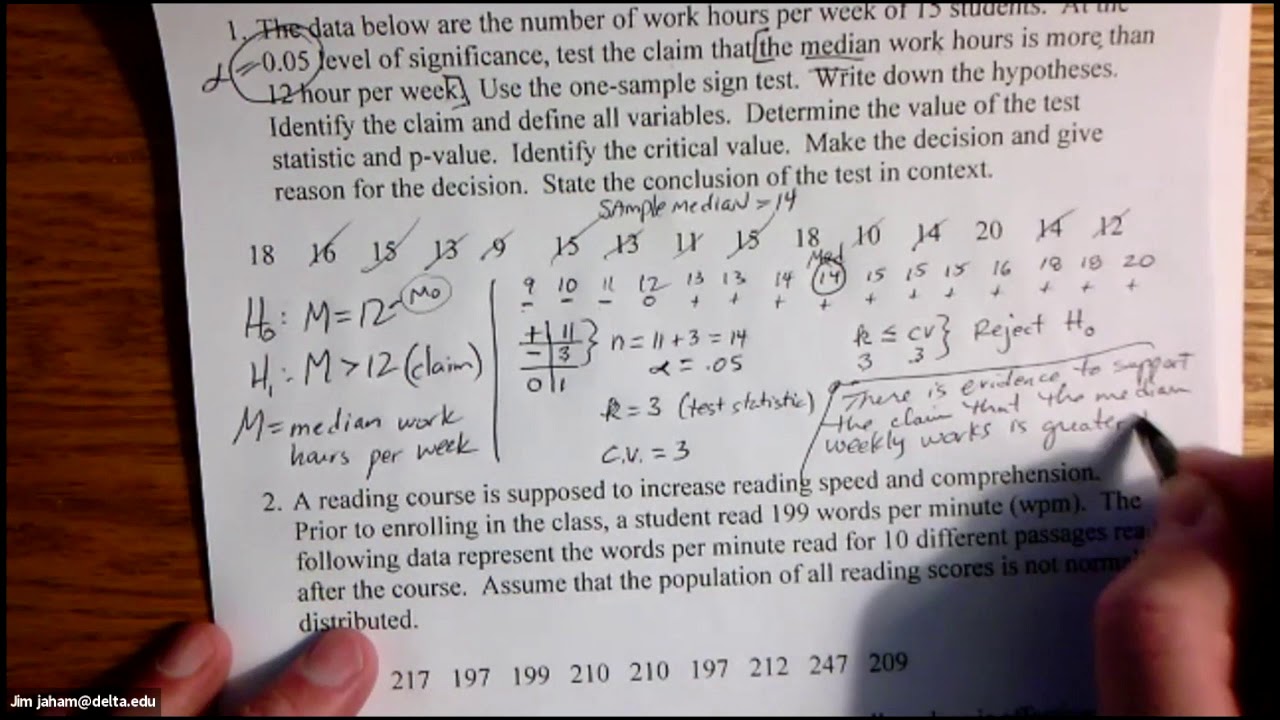 1. The data below are the number of work hours per week of 15 students. At the
α = 0.05 level of significance, test the claim that [the median work hours is more than
12 hour per week]. Use the one-sample sign test. Write down the hypotheses.
Identify the claim and define all variables. Determine the value of the test
statistic and p-value. Identify the critical value. Make the decision and give
reason for the decision. State the conclusion of the test in context.
SAmple mediAN = 14
18 16 15 13 9 15 13 11 15 18 10 14 20 14 12
Med
9 10 11 12 13 13 14 14 15 15 15 16 18 18 20
- - - 0 + + + + + + + + + + +
H₀: M = 12 - Mo
H₁: M > 12 (claim)
M = median work
hours per week
+ | 11
- | 3
0 | 1
n = 11 + 3 = 14
α = .05
k = 3 (test statistic)
C.V. = 3
k ≤ CV } Reject H₀
3 3
There is evidence to support
the claim that the median
weekly works is greater
2. A reading course is supposed to increase reading speed and comprehension.
Prior to enrolling in the class, a student read 199 words per minute (wpm). The
following data represent the words per minute read for 10 different passages rea
after the course. Assume that the population of all reading scores is not norma
distributed.
217 197 199 210 210 197 212 247 209
Jim jaham@delta.edu